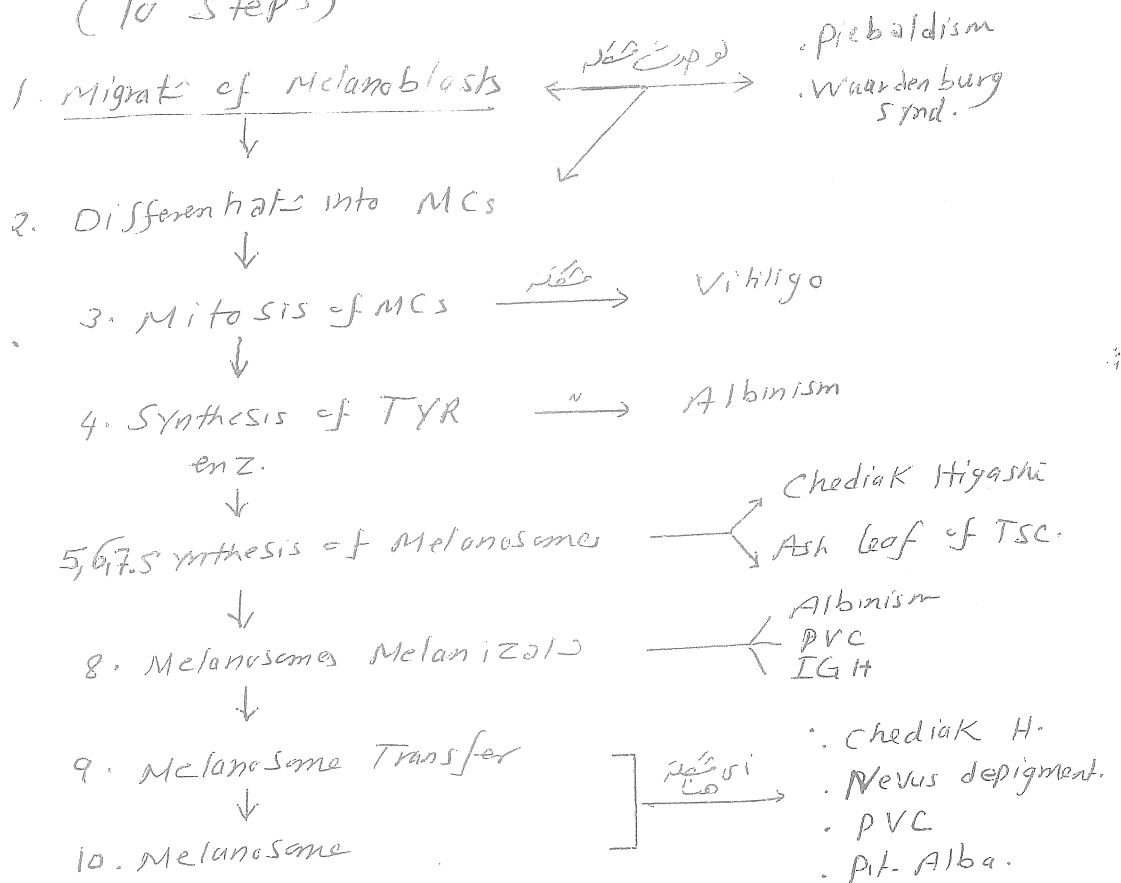 (10 Steps)
1. Migrat⁻ of Melanoblasts
لو حدث مشكلة
. Piebaldism
. Waardenburg
Synd.
2. Differentiat⁻ into MCs
3. Mitosis of MCs
مشكلة
Vitiligo
4. Synthesis of TYR
enz.
Albinism
5,6,7. Synthesis of Melanosomes
Chediak Higashi
Ash leaf of TSC.
8. Melanosomes Melanizat⁻
Albinism
PVC
IGH
9. Melanosome Transfer
10. Melanosome
أى مشكلة
هنا
. Chediak H.
. Nevus depigment.
. PVC
. Pit. Alba.